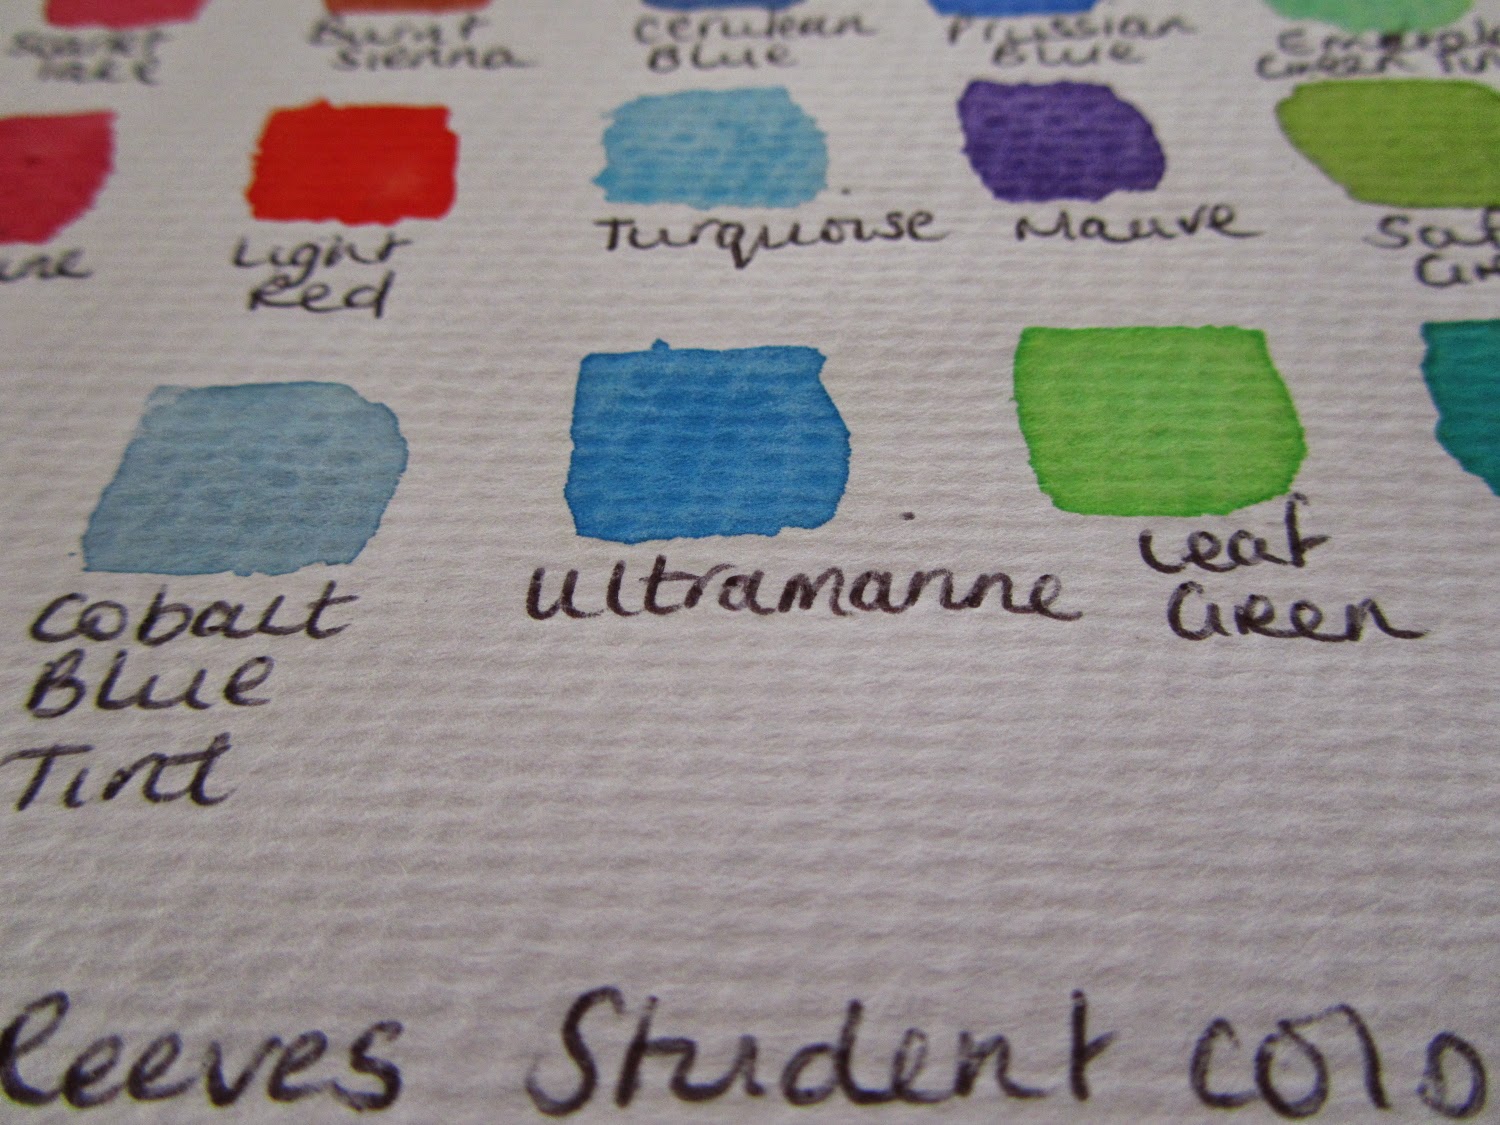 Scarlet
Lake
Burnt
Sienna
Cerulean
Blue
Prussian
Blue
Light
Red
Turquoise
Mauve
Cobalt
Blue
Tint
Ultramarine
Leaf
Green
Reeves Student Colo